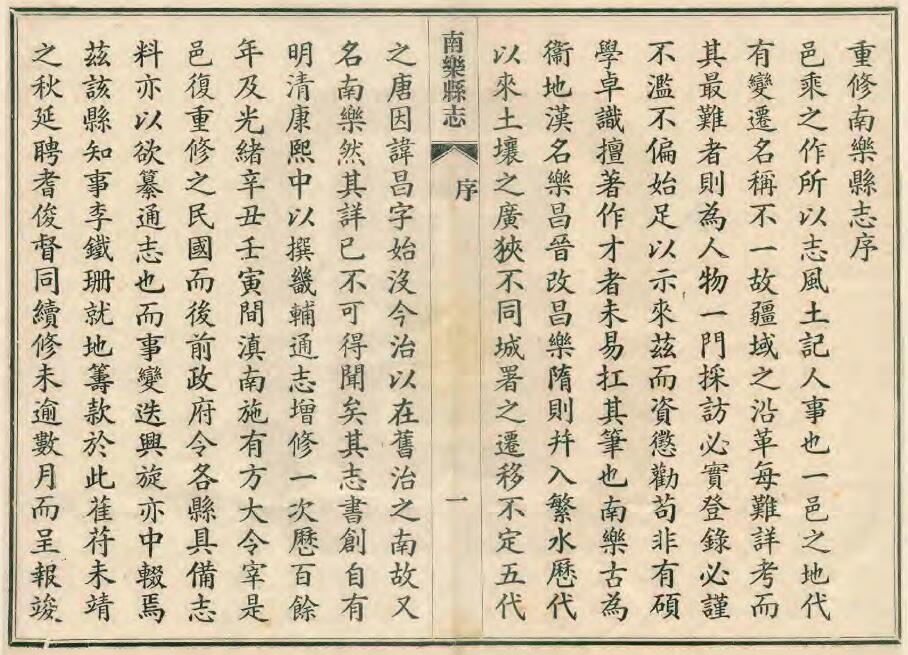 重修南樂縣志序
邑乘之作所以志風土記人事也一邑之地代
有變遷名稱不一故疆域之沿革每難詳考而
其最難者則為人物一門採訪必實登錄必謹
不濫不偏始足以示來茲而資懲勸苟非有碩
學卓識擅著作才者未易扛其筆也南樂古為
衞地漢名樂昌晉改昌樂隋則幷入繁水歷代
以來土壤之廣狹不同城署之遷移不定五代
南樂縣志
序
一
之唐因諱昌字始沒今治以在舊治之南故又
名南樂然其詳已不可得聞矣其志書創自有
明清康熙中以撰畿輔通志增修一次歷百餘
年及光緒辛丑壬寅間滇南施有方大令宰是
邑復重修之民國而後前政府令各縣具備志
料亦以欲纂通志也而事變迭興旋亦中輟焉
茲該縣知事李鐵珊就地籌款於此萑苻未靖
之秋延聘耆俊督同續修未逾數月而呈報竣